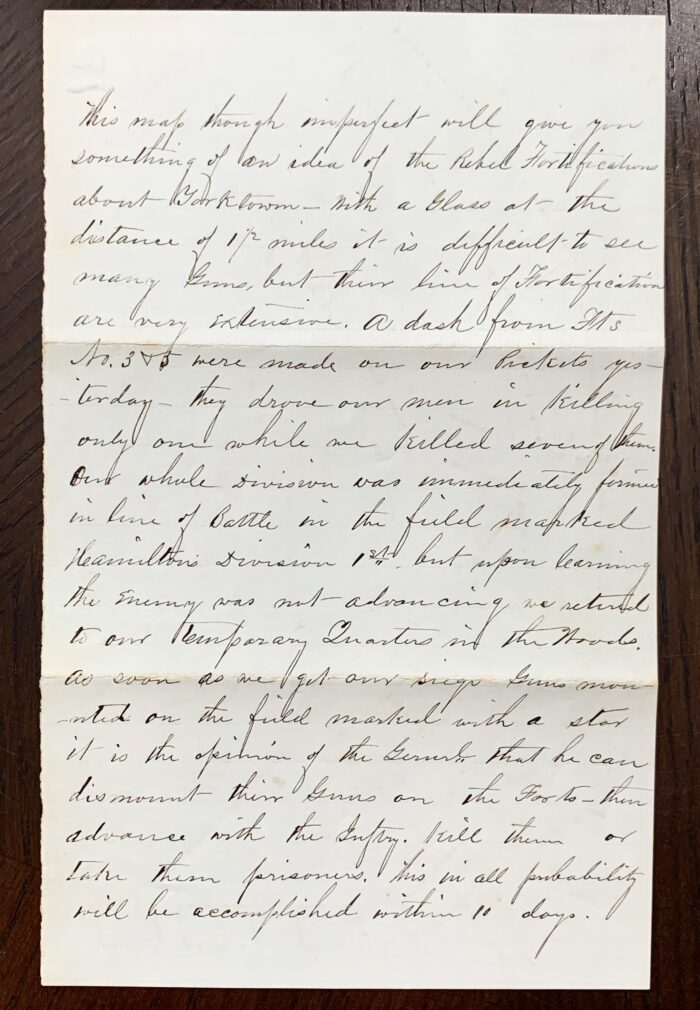 This map though imperfect will give you
something of an idea of the Rebel Fortifications
about Yorktown – With a Glass at the
distance of 1½ miles it is difficult to see
many Guns, but their line of Fortification
are very extensive. A dash from Fts
No. 3 & 5 were made on our Pickets yes-
-terday – they drove our men in killing
only one while we killed seven of them.
Our whole Division was immediately formed
in line of Battle in the field marked
Hamilton's Division 1st. but upon learning
the Enemy was not advancing we retired
to our Temporary Quarters in the Woods.
as soon as we get our siege Guns mou-
-nted on the field marked with a star
it is the opinion of the General that he can
dismount their Guns on the Forts – then
advance with the Inftry. Kill them or
take them prisoners. This in all probability
will be accomplished within 10 days.